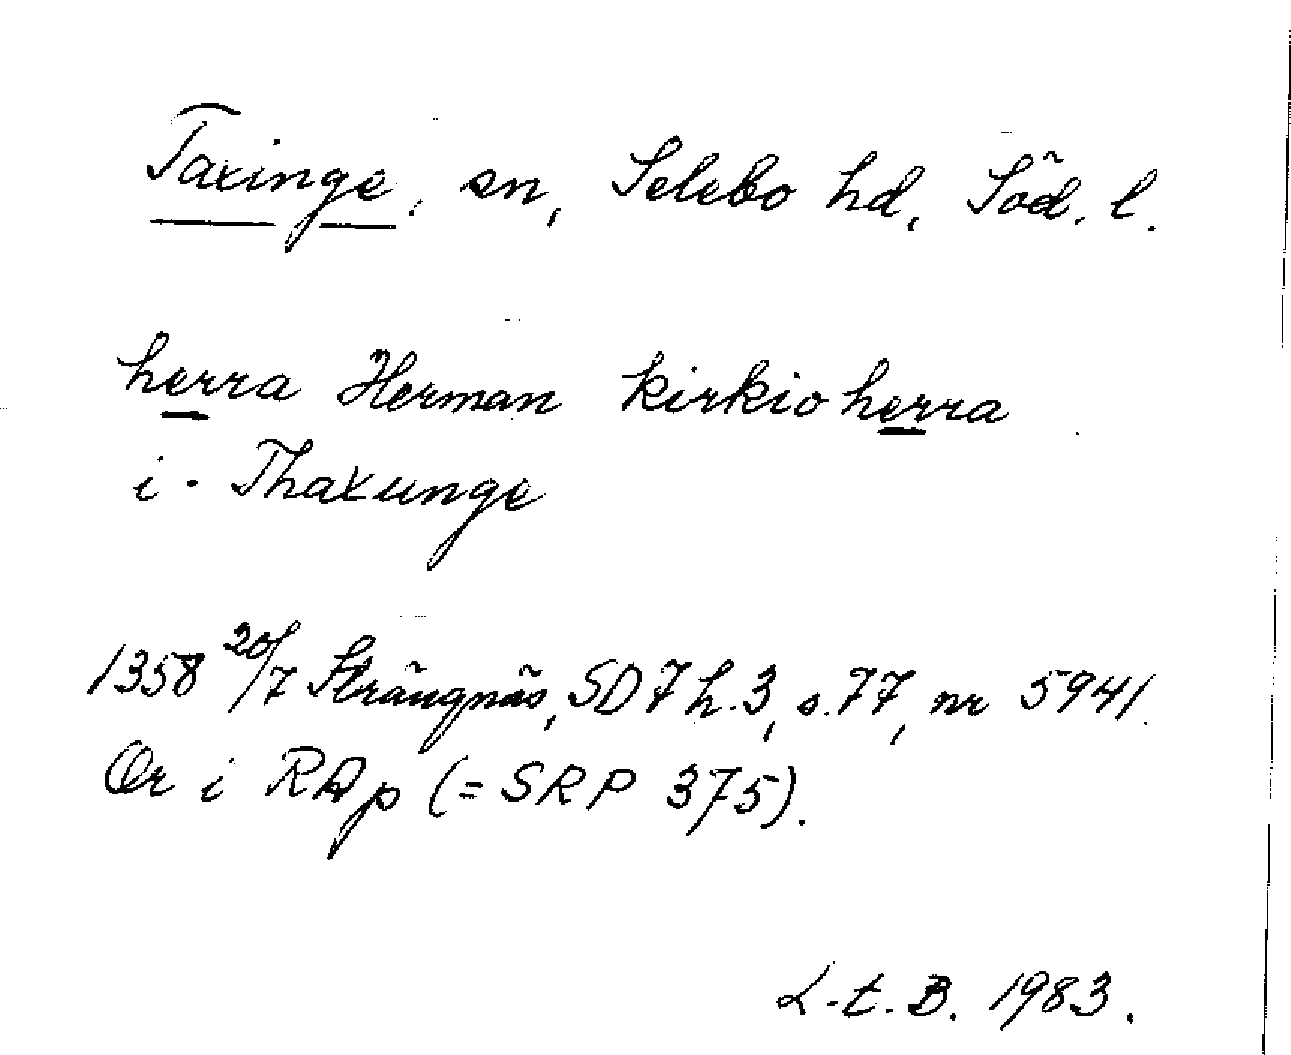 Taxinge, sn, Selebo hd, Söd. l.
herra Herman kirkioherra
i · Thaxunge
1358 20/7 Strängnäs, SD 7 h. 3, s. 77, nr 5941.
Or i RAp (= SRP 375).
L-t. B. 1983.